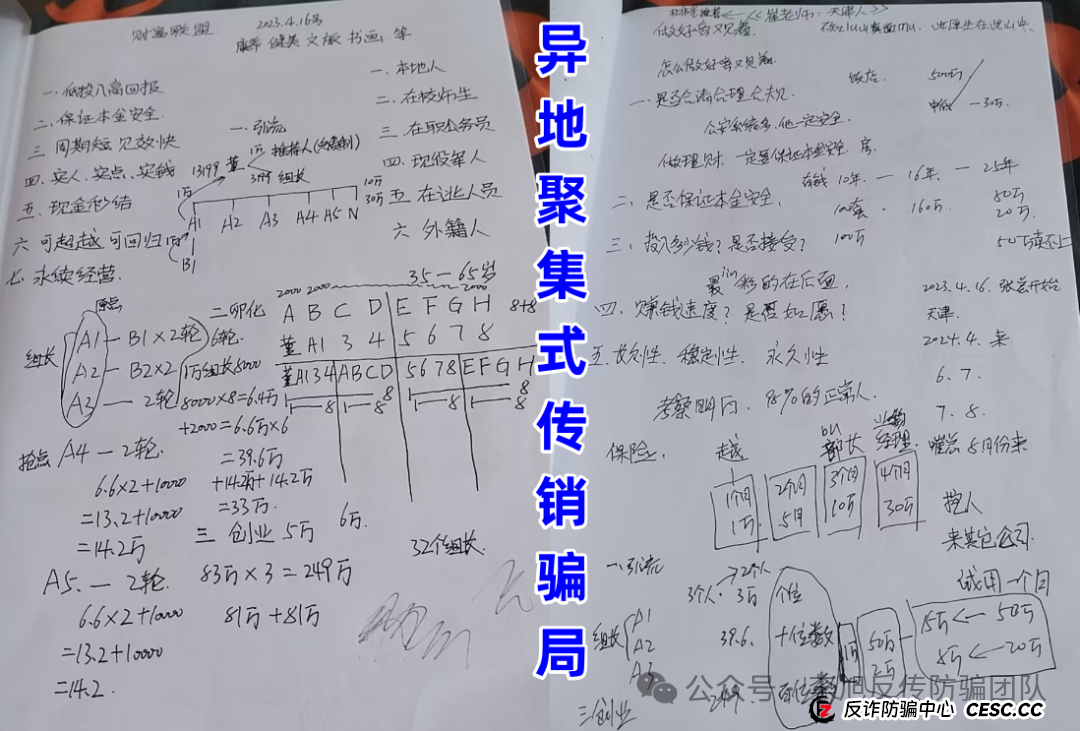 2023.4.16号
财富联盟
康养 健美 文版 书画 等
一、低投入高回报
二、保证本金安全
三、周期短 见效快
四、实人、实点、实钱
五、现金秒结
六 可超越 可回归
七、永续经营
一、本地人
二、在校师生
三、在职公务员
四、现役军人
五 在逃人员
六 外籍人
35—65岁
一、引流
1399 董
1万 推荐人
3999 组长
1万
10万
30万
A1 A2 A3 A4 A5 N
B1
原点
组长
A1—B1×2轮
A2—B2×2
A3—2轮
6轮
1万组长8000
8000×8=6.4万
+2000=6.6万×6
=39.6万
+14.2万+14.2万
=33万
二 孵化
2000 2000 2000
A B C D E F G H 8+8
董 A1 3 4 5 6 7 8
董A1 3 4 A B C D 5 6 7 8 E F G H
1—8 1—8 1—8 1—8
抢点 A4—2轮
6.6×2+10000
=13.2+10000
=14.2万
A5.—2轮
6.6×2+10000
=13.2+10000
=14.2.
三 创业 5万 6万.
83万×3=249万
81万+81万
32个组长
异地聚集式传销骗局
崔老师：天津人
怎么做好
一、是否合法合理合规.
公安系统多，他一定安全.
做理财、一定要保证本金安全
500万
30万
10年.—16年.—25年
二、是否保证本金安全、
100套. 160万. 80万
20万.
三、投入多少钱？是否接受？
100万
50万
最精彩的在后面
四、赚钱速度？是否如愿？
2023.4.16.
开始
天津.
2024.4.来
6.7.
7.8.
5月份来
五、 稳定性、永久性
考察 98%的正常人.
保险
部长
经理
1个月
1万
2个月
5月
3个月
10万
4个月
30万
挖人
来其它公司
试用一个月
一、引流
3个人·3万
2个人
个位
组长
A1
A2
A3
39.6.
十位数
249.
百位数
50万
2万
15万←50万
8万←20万
三、创业
公众号
旭反传防骗团队
反诈防骗中心 CESC.CC